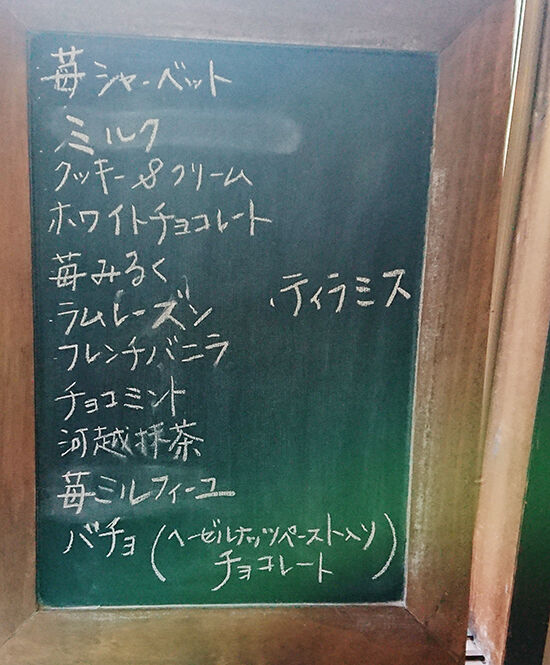 苺シャーベット
ミルク
クッキー&クリーム
ホワイトチョコレート
苺みるく
ラムレーズン
ティラミス
フレンチバニラ
チョコミント
河越抹茶
苺ミルフィーユ
バチョ(ヘーゼルナッツペースト入り
チョコレート)